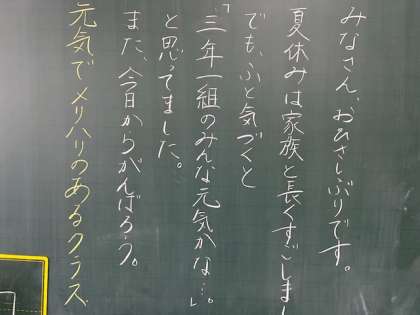 みなさん、おひさしぶりです。
夏休みは家族と長くすごしまし
でも、ふと気づくと
「三年一組のみんな元気かな…。」
と思ってました。
また、今日からがんばろう。
元気でメリハリのあるクラス